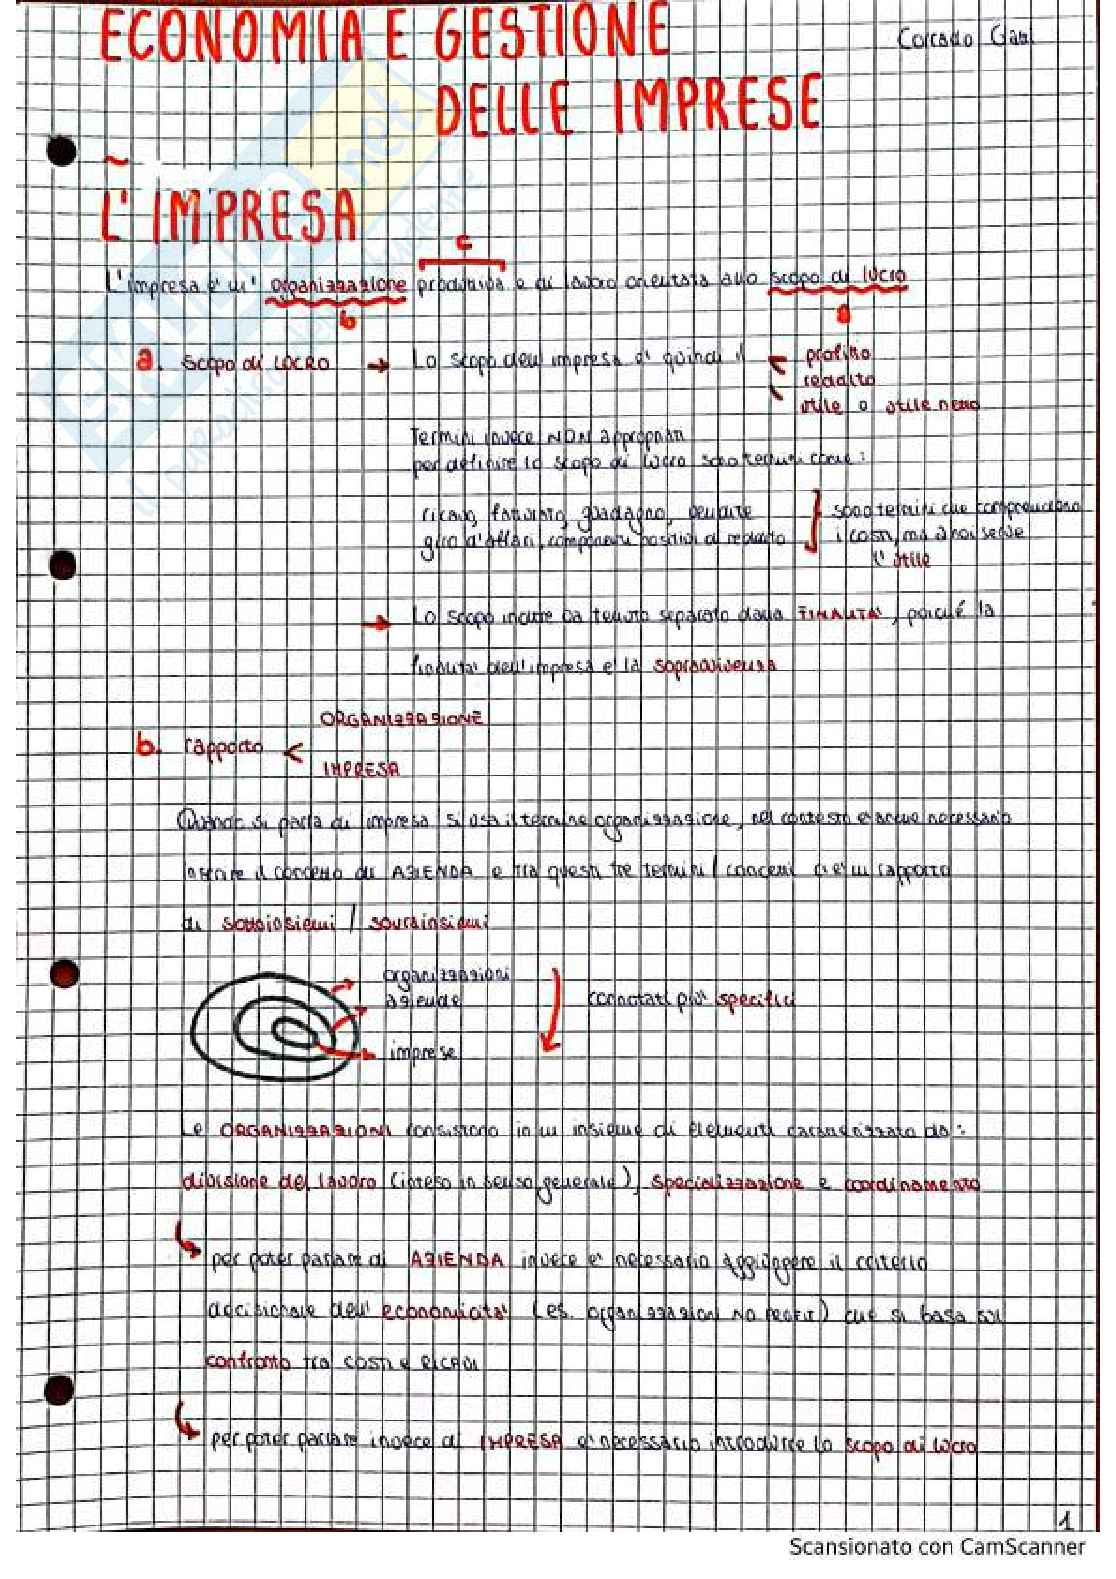 ECONOMIA E GESTIONE
DELLE IMPRESE
Corrado Gatti
L'IMPRESA
c
L'impresa è un' organizzazione produttiva e di lavoro orientata allo scopo di lucro
b
a
a. scopo di LUCRO → Lo scopo dell'impresa è quindi il
profitto
reddito
utile o utile netto
Termini invece NON appropriati
per definire lo scopo di lucro sono termini come:
ricavo, fatturato, guadagno, vendite
giro d'affari, componenti positivi di reddito
sono termini che comprendono
i costi, ma a noi serve
l'utile
→ Lo scopo inoltre va tenuto separato dalla FINALITA', poiché la
finalità dell'impresa è la sopravvivenza
b. rapporto <
ORGANIZZAZIONE
IMPRESA
Quando si parla di impresa si usa il termine organizzazione, nel contesto è anche necessario
inserire il concetto di AZIENDA e tra questi tre termini / concetti c'è un rapporto
di sottoinsiemi / sovrainsiemi
organizzazioni
aziende
imprese
connotati più specifici
Le ORGANIZZAZIONI consistono in un insieme di elementi caratterizzato da:
divisione del lavoro (inteso in senso generale), specializzazione e coordinamento
per poter parlare di AZIENDA invece è necessario aggiungere il criterio
decisionale dell'economicità (es. organizzazioni NO PROFIT) che si basa sul
confronto tra COSTI e RICAVI
per poter parlare invece di IMPRESA è necessario introdurre lo scopo di lucro
1
Scansionato con CamScanner